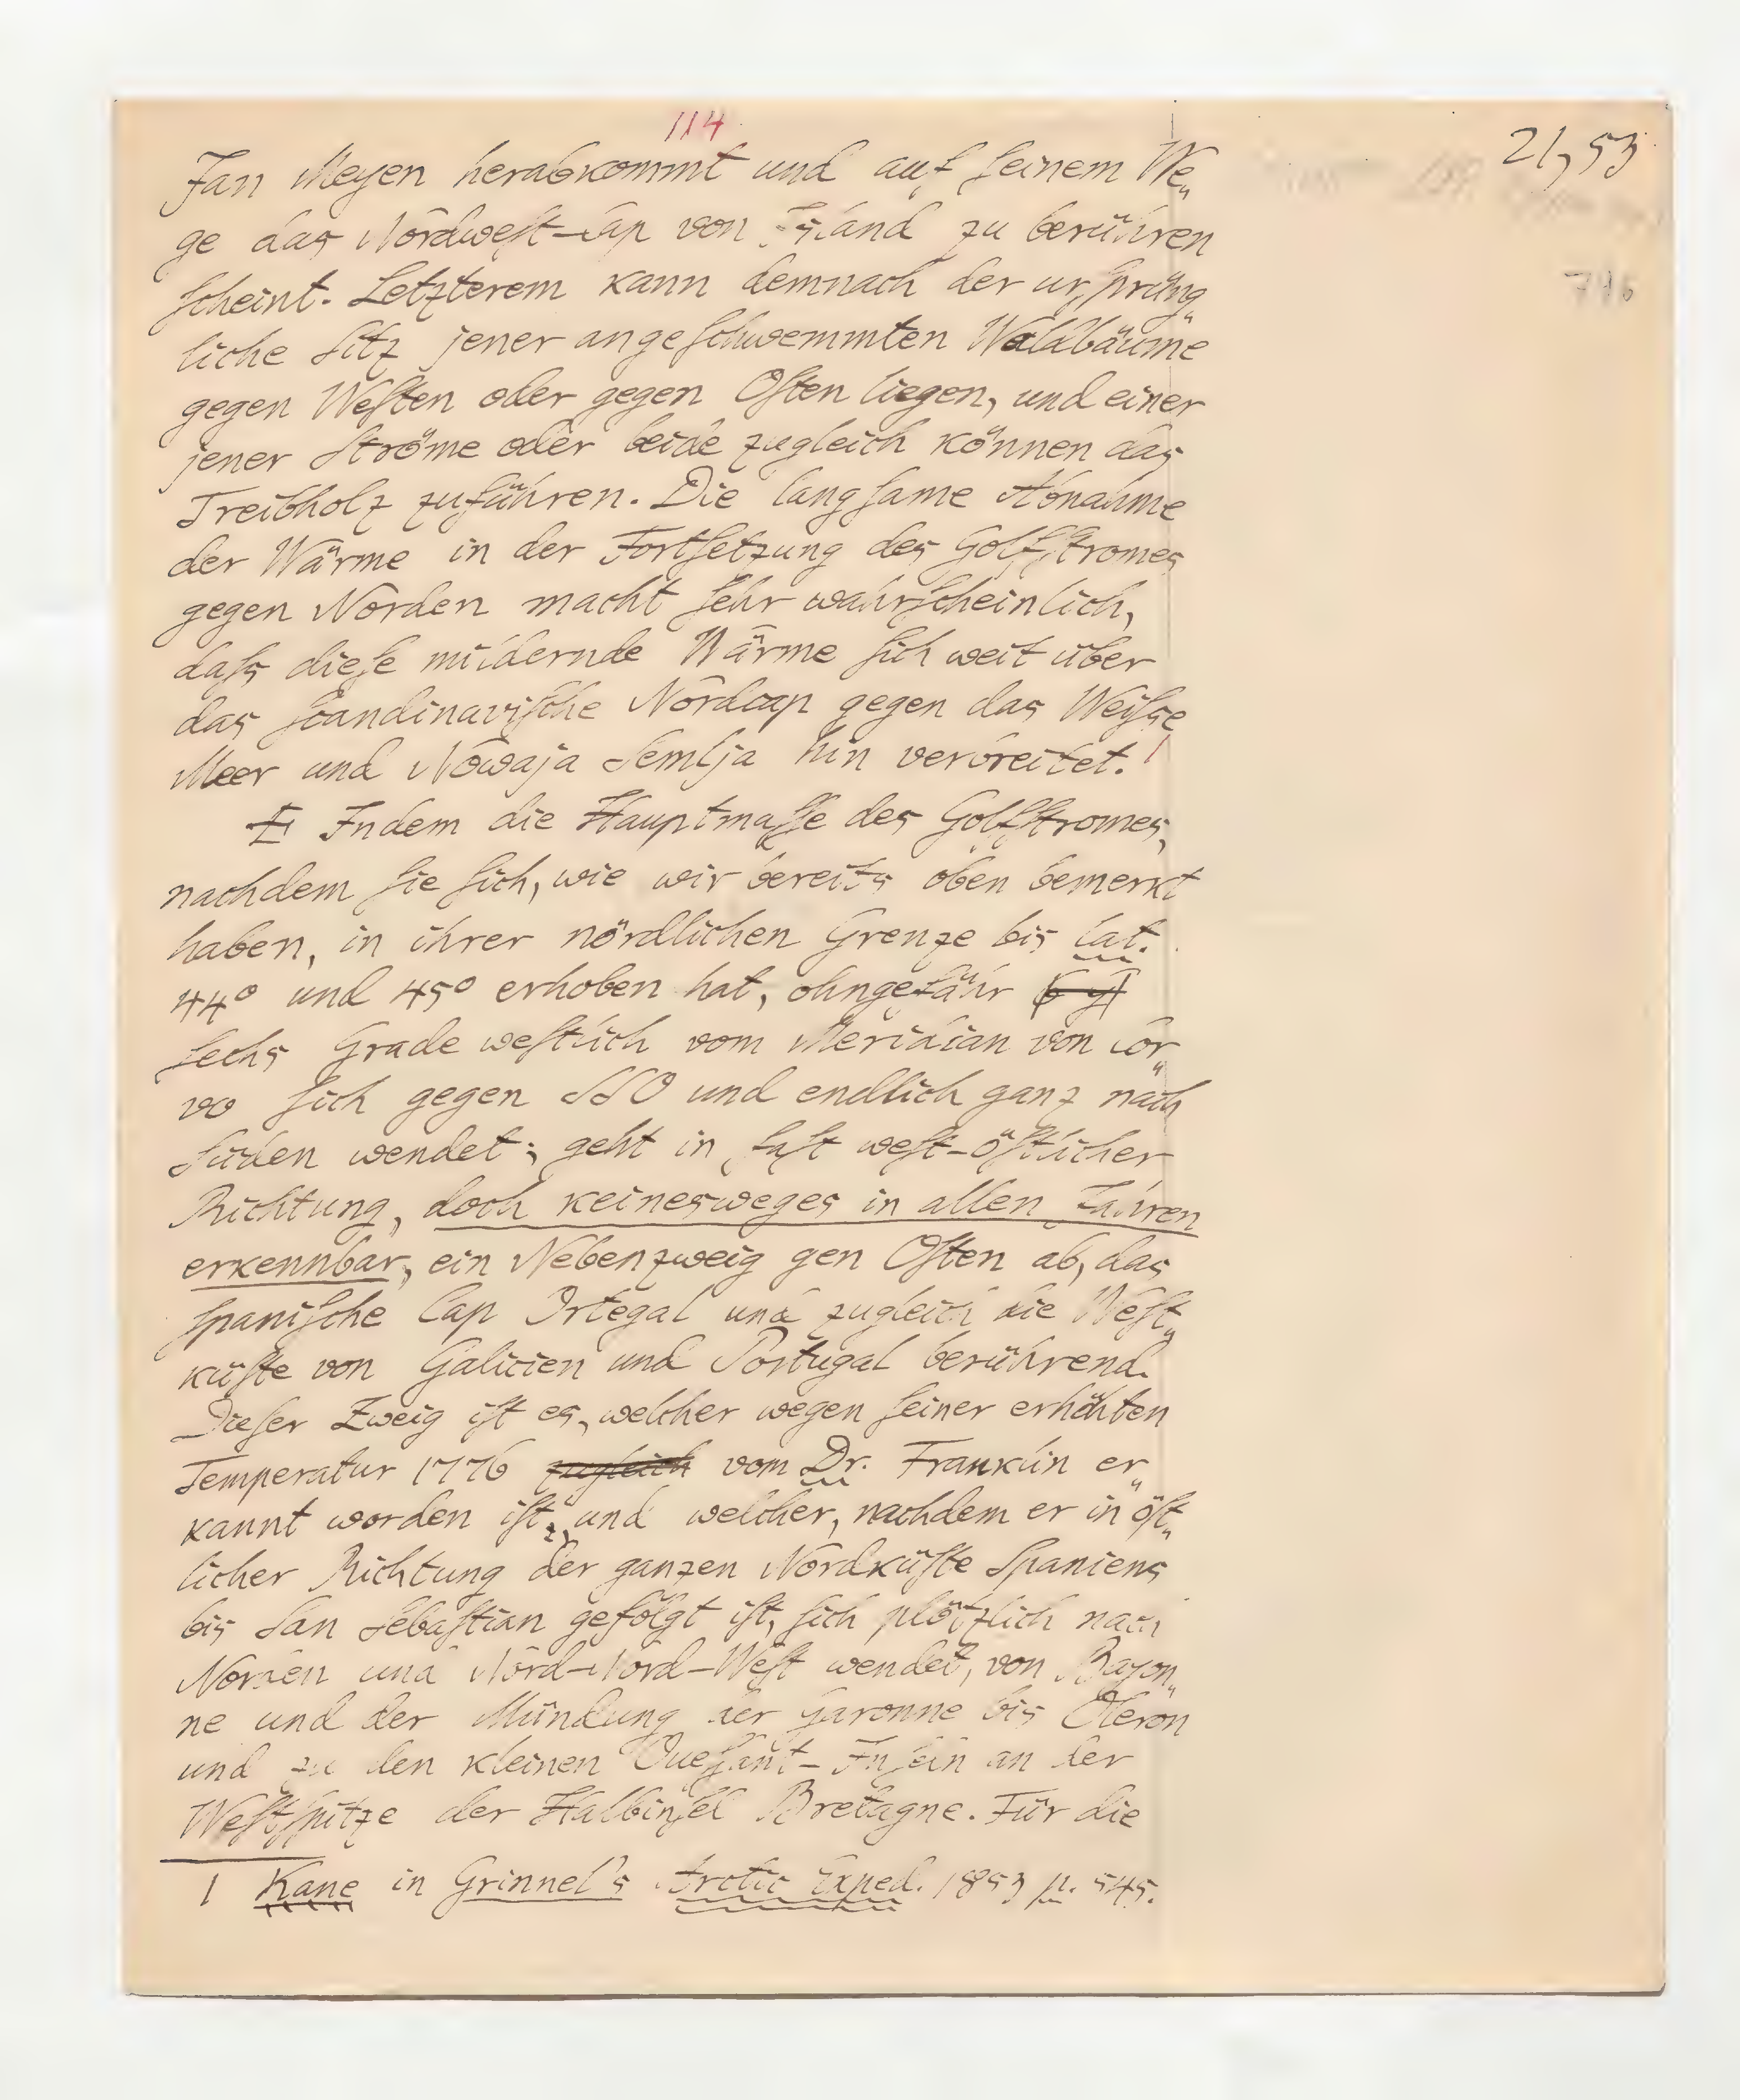 114
21,53
Jan Meyen herabkommt und auf seinem We„
ge das Nordwest-Cap von Island zu berühren
scheint. Letzterem kann demnach der ursprüng„
liche Sitz jener angeschwemmten Waldbäume
gegen Westen oder gegen Osten liegen, und einer
jener Ströme oder beide zugleich können das
Treibholz zuführen. Die langsame Abnahme
der Wärme in der Fortsetzung des Golfstromes
gegen Norden macht sehr wahrscheinlich,
dass diese mildernde Wärme sich weit über
das scandinavische Nordcap gegen das Weisse
Meer und Nowaja Semlja hin verbreitet. 1
E Indem die Hauptmasse des Golfstromes,
nachdem sie sich, wie wir bereits oben bemerkt
haben, in ihrer nördlichen Grenze bis lat.
44° und 45° erhoben hat, ohngefähr
sechs Grade westlich vom Meridian von Cor„
vo sich gegen SSO und endlich ganz nach
Süden wendet; geht in fast west-östlicher
Richtung, doch keinesweges in allen Jahren
erkennbar, ein Nebenzweig gen Osten ab, das
spanische Cap Ortegal und zugleich die West„
küste von Galicien und Portugal berührend.
Dieser Zweig ist es, welcher wegen seiner erhöhten
Temperatur 1776 zugleich vom Dr. Franklin er„
kannt worden ist, und welcher, nachdem er in öst„
licher Richtung der ganzen Nordküste Spaniens
bis San Sebastian gefolgt ist, sich plötzlich nach
Norden und Nord-Nord-West wendet, von Bayon„
ne und der Mündung der Garonne bis Oleron
und zu den kleinen Ouessant-Inseln an der
Westspitze der Halbinsel Bretagne. Für die
1 Kane in Grinnel's Arctic Exped. 1853 p. 545.